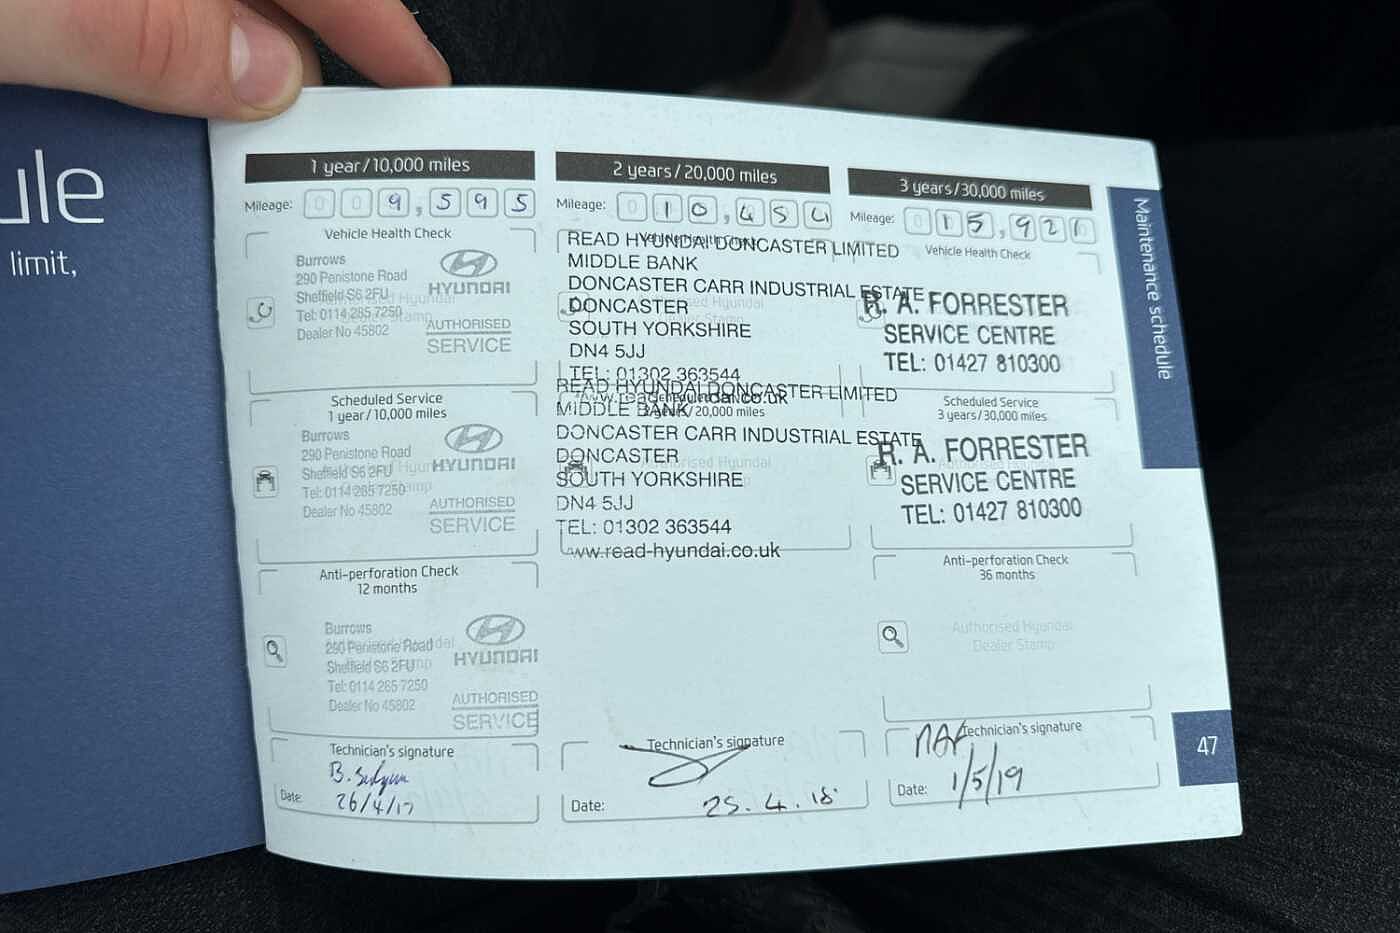 ule
limit,
1 year/10,000 miles
Mileage: 0 0 9,595
Vehicle Health Check
Burrows
290 Penistone Road
Sheffield S6 2FU
Tel: 0114 285 7250
Dealer No 45802
HYUNDAI
AUTHORISED
SERVICE
Scheduled Service
1 year/10,000 miles
Burrows
290 Penistone Road
Sheffield S6 2FU
Tel: 0114 285 7250
Dealer No 45802
HYUNDAI
AUTHORISED
SERVICE
Anti-perforation Check
12 months
Burrows
290 Penistone Road
Sheffield S6 2FU
Tel: 0114 285 7250
Dealer No 45802
HYUNDAI
AUTHORISED
SERVICE
Technician's signature
Date: 26/4/17
2 years/20,000 miles
Mileage: 0 10,454
READ HYUNDAI DONCASTER LIMITED
MIDDLE BANK
DONCASTER CARR INDUSTRIAL ESTATE
DONCASTER
SOUTH YORKSHIRE
DN4 5JJ
TEL: 01302 363544
www.read-hyundai.co.uk
READ HYUNDAI DONCASTER LIMITED
MIDDLE BANK
DONCASTER CARR INDUSTRIAL ESTATE
DONCASTER
SOUTH YORKSHIRE
DN4 5JJ
TEL: 01302 363544
www.read-hyundai.co.uk
Technician's signature
Date: 25.4.18
3 years/30,000 miles
Mileage: 0 15,921
Vehicle Health Check
R. A. FORRESTER
SERVICE CENTRE
TEL: 01427 810300
Scheduled Service
3 years/30,000 miles
R. A. FORRESTER
SERVICE CENTRE
TEL: 01427 810300
Anti-perforation Check
36 months
Authorised Hyundai
Dealer Stamp
Technician's signature
Date: 1/5/19
Maintenance schedule
47